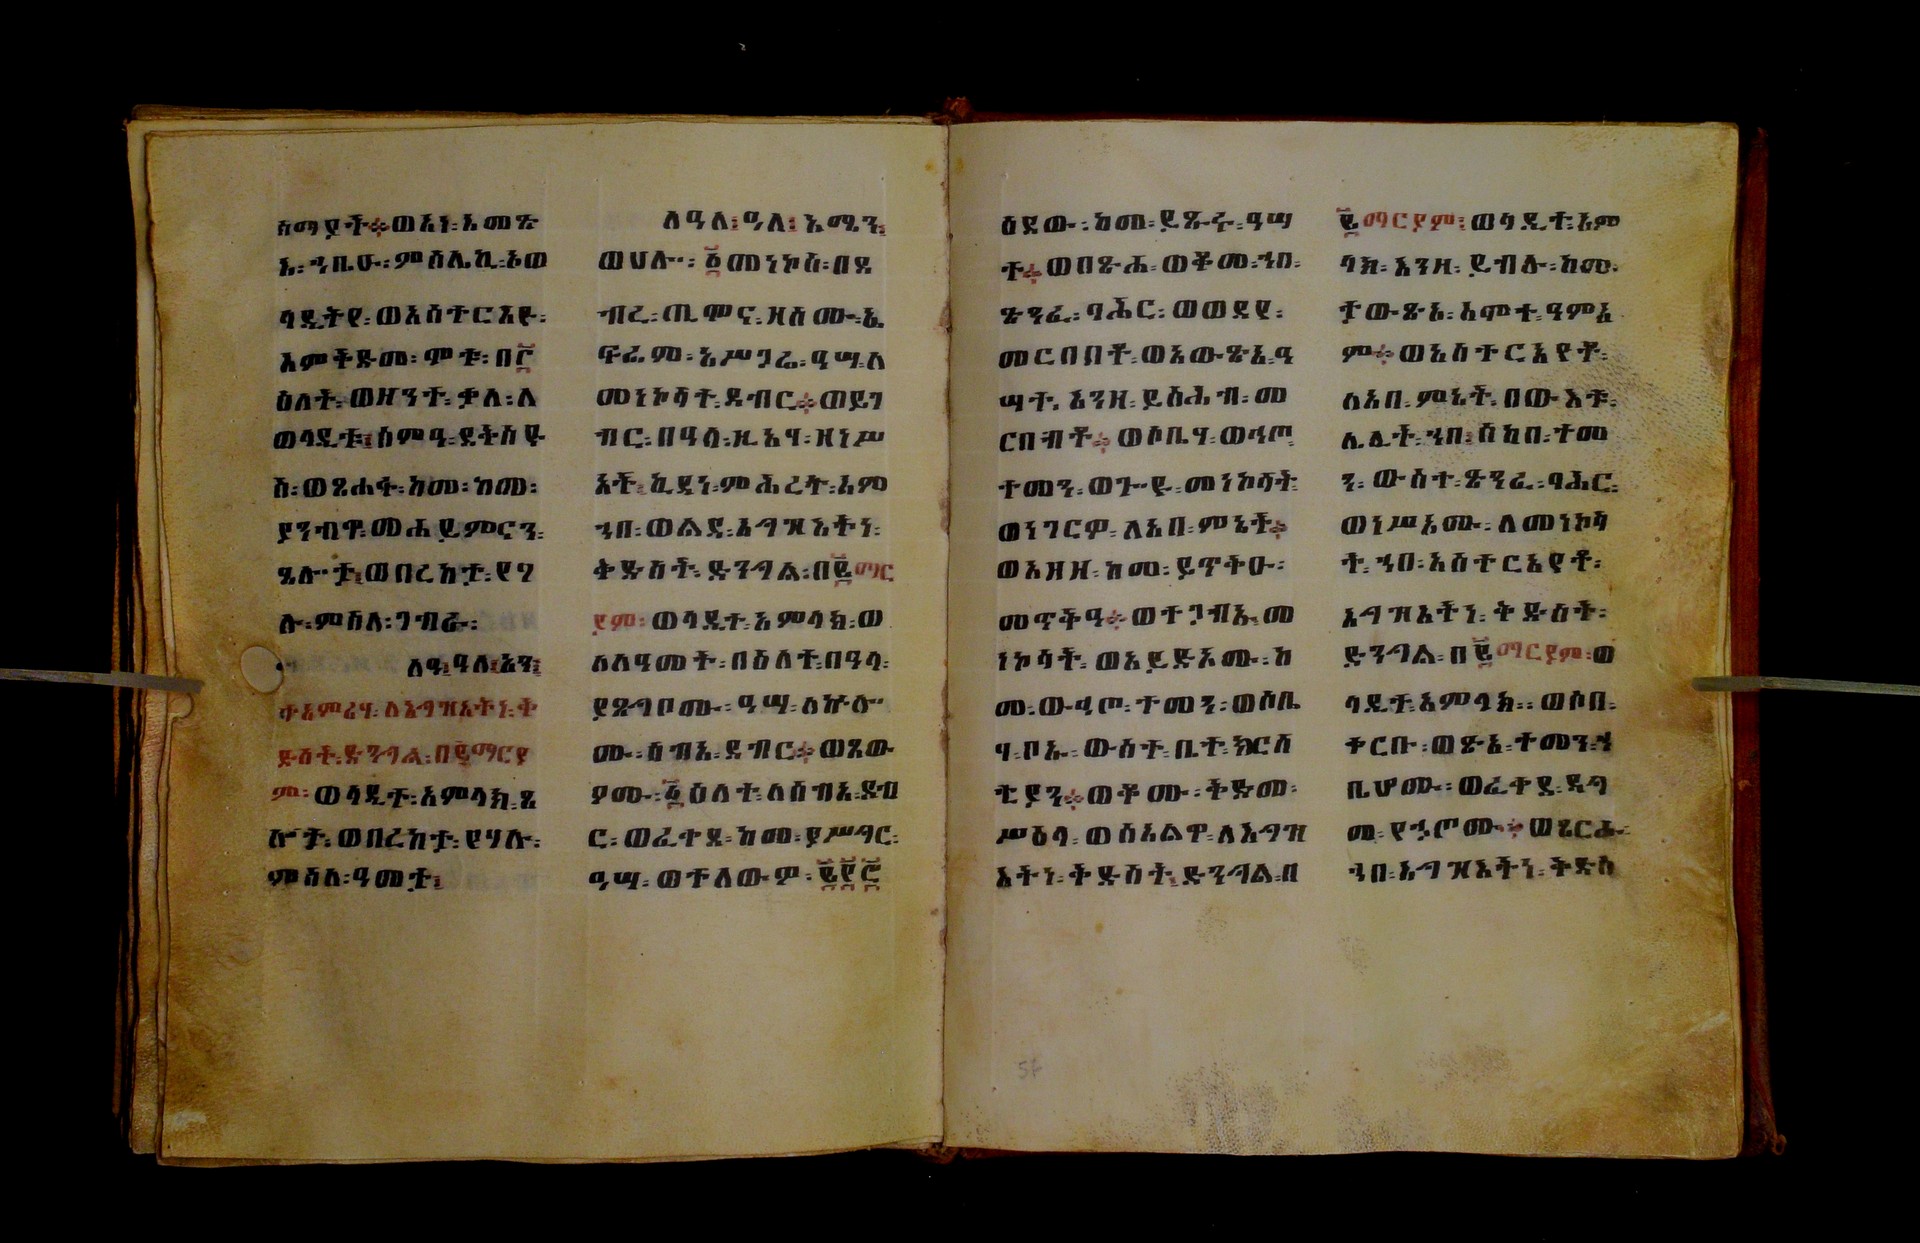 ሰማያት፨ወአነ፡ኢመጽ
ኡ፡ኀቤሁ፡ምስሌኪ፡ኦወ
ላዲትየ፡ወአስተርእዩ፡
እምቅድመ፡ሞቱ፡በ፫
ዕለት፡ወዘንተ፡ቃለ፡ለ
ወላዲቱ፡ሰምዓ፡ደቅስዩ
ስ፡ወጸሐፋ፡ከመ፡ከመ፡
ያንብዋ፡መሐይምናን፡
ጸሎታ፡ወበረከታ፡የሃ
ሉ፡ምስለ፡ገብራ፡
ለዓ፡ዓለ፡አን፡
ተአምሪሃ፡ለእግዝእትነ፡ቅ
ድስት፡ድንግል፡በ፪ማርያ
ም፡ወላዲተ፡አምላክ፡ጸ
ሎታ፡ወበረከታ፡የሃሉ፡
ምስለ፡ዓመታ፡
ለዓለ፡ዓለ፡አሜን፡
ወሀሎ፡፩መነኮስ፡በደ
ብረ፡ጢሞና፡ዘስሙ፡ኤ
ፍሬም፡ኢሥጋሬ፡ዓሣ፡ለ
መነኮሳት፡ደብር፨ወይገ
ብር፡በዓለ፡ዚአሃ፡ዘነሥ
አት፡ኪዳነ፡ምሕረት፡እም
ኀበ፡ወልደ፡እግዝእትነ፡
ቅድስት፡ድንግል፡በ፪ማር
ያም፡ወላዲተ፡አምላክ፡ወ
ለለዓመት፡በዕለተ፡በዓላ፡
ያጸግቦሙ፡ዓሣ፡ለኵሎ
ሙ፡ሰብአ፡ደብር፨ወጸው
ዖሙ፡፩ዕለተ፡ለሰብአ፡ደብ
ር፡ወፈቀደ፡ከመ፡ያሥግር፡
ዓሣ፡ወተለውዎ፡፪፻፫
ዕደው፡ከመ፡ይጹሩ፡ዓሣ
ተ፨ወበጽሐ፡ወቆመ፡ኀበ፡
ጽንፈ፡ባሕር፡ወወደየ፡
መርበቦ፡ወአውጽአ፡ዓ
ሣተ፡እንዘ፡ይስሕብ፡መ
ርበብቶ፨ወሶቤሃ፡ወኀጦ
ተመን፡ወጐዩ፡መነኮሳት፡
ወነገርዎ፡ለአበ፡ምኔት፨
ወአዘዘ፡ከመ፡ይጥቅዑ፡
መጥቅዓ፨ወተጋብኡ፡መ
ነኮሳት፡ወአይድኦሙ፡ከ
መ፡ውኅጦ፡ተመን፡ወሶቤ
ሃ፡ቦኡ፡ውስተ፡ቤተ፡ክርስ
ቲያን፨ወቆሙ፡ቅድመ፡
ሥዕላ፡ወሰአልዋ፡ለእግዝ
እትነ፡ቅድስት፡ድንግል፡በ
፪ማርያም፡ወላዲተ፡አም
ላክ፡እንዘ፡ይብሉ፡ከመ፡
ታውጽእ፡እሞተ፡ዓምኔ
ም፨ወአስተርአየቶ፡
ለአበ፡ምኔት፡በውእቱ፡
ሌሊት፡ኀበ፡ሰከበ፡ተመ
ን፡ውስተ፡ጽንፈ፡ባሕር፡
ወነሥአሙ፡ለመነኮሳ
ት፡ኀበ፡አስተርአየቶ፡
እግዝእትነ፡ቅድስት፡
ድንግል፡በ፪ማርያም፡ወ
ላዲተ፡አምላክ፡፡ወሶበ፡
ቀርቡ፡ወጽአ፡ተመን፡ኀ
ቤሆሙ፡ወፈቀደ፡ዳግ
መ፡የኀጦሙ፨ወጸርሑ፡
ኀበ፡እግዝእትነ፡ቅድስ